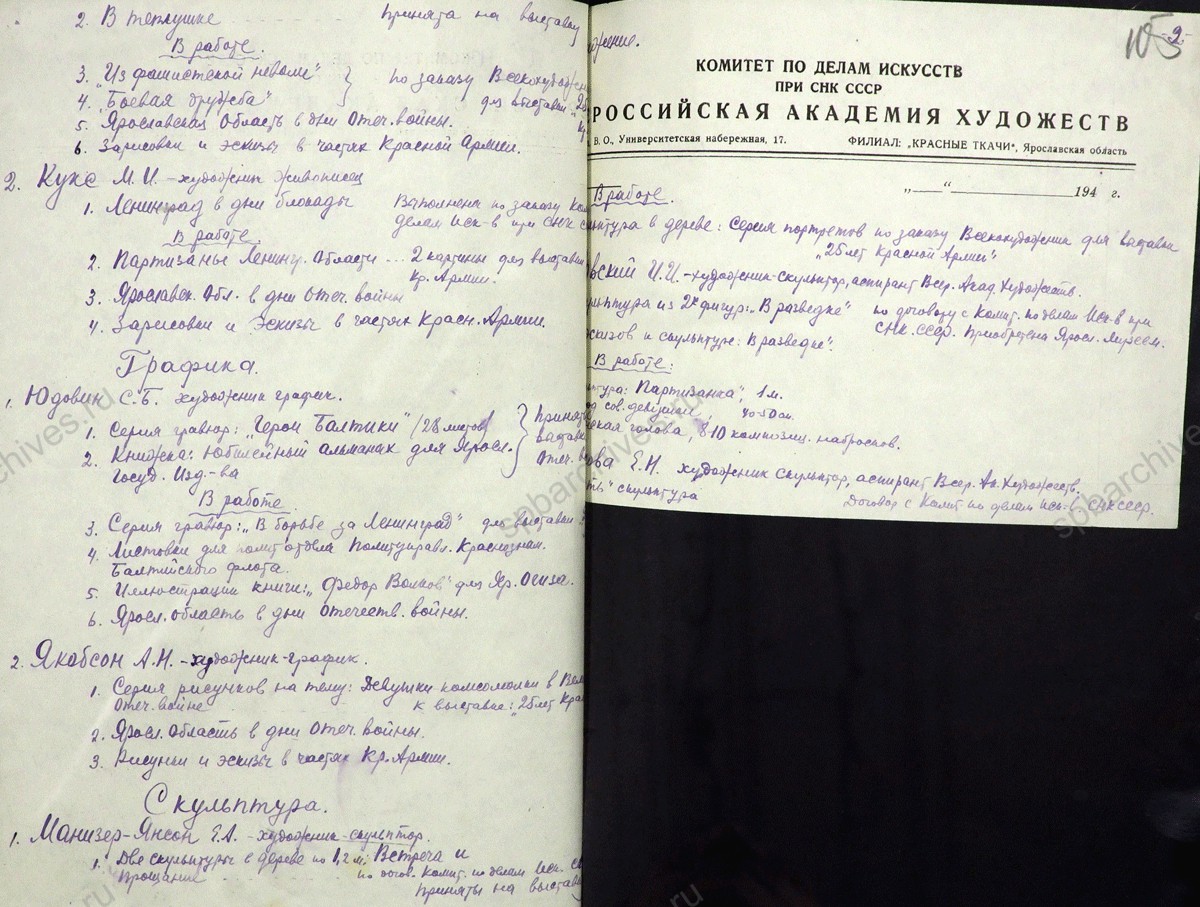 2. В теплушке принята на выставку
В работе.
3. „Из фашистской неволи"
4. „Боевая дружба" по заказу Всекохудожн
для выставки „25
5. Ярославская Область в дни Отеч. войны.
6. Зарисовки и эскизы в частях Красной Армии.
2. Кукс М.И. – художник живописец
1. Ленинград в дни блокады Выполнены по заказу Ком
делам Иск-в при СНК С
В работе.
2. Партизаны Ленингр. Области ... 2 картины для выставки
Кр. Армии.
3. Ярославск. Обл. в дни отеч. войны
4. Зарисовки и Эскизы в частях Красн. Армии.
Графика.
1. Юдовин С.Б. художник график.
1. Серия гравюр: „Герои Балтики" /28 листов/
2. Книжка: юбилейный альманах для Яросл.
Госуд. Изд-ва
принят
выставк
Отеч. в
В работе.
3. Серия гравюр: „В борьбе за Ленинград" для выставки
4. Листовки для политотдела Политуправл. Краснознам.
Балтийского флота.
5. Иллюстрации книги: „Федор Волков" для Яр. Огиза.
6. Яросл. область в дни отечеств. войны.
2. Якобсон А.Н. – художник-график.
1. Серия рисунков на тему: Девушки комсомолки в Вел
Отеч. войне к выставке: „25 лет Кра
2. Яросл. область в дни отеч. войны.
3. Рисунки и эскизы в частях Кр. Армии.
Скульптура.
1. Манизер-Янсон Е.А. – художник-скульптор.
1. Две скульптуры в дереве по 1,2 м: Встреча и
Прощание по догов. Комит. по делам Иск.
Приняты на выстав
жение.
105
-2-
КОМИТЕТ ПО ДЕЛАМ ИСКУССТВ
ПРИ СНК СССР
РОССИЙСКАЯ АКАДЕМИЯ ХУДОЖЕСТВ
В. О., Университетская набережная, 17. ФИЛИАЛ: „КРАСНЫЕ ТКАЧИ", Ярославская область
„____“____________194 г.
В работе.
льптура в дереве: Серия портретов по заказу Всекохудожник для выставки
„25 лет Красной Армии"
вский И.И. – художник-скульптор, аспирант Всер. Акад. Художеств.
ульптура из 2х фигур: „В разведке" по договору с Комит. по делам Иск-в при
СНК. СССР. Приобретена Яросл. Музеем.
скизов и скульптуре: В разведке".
В работе:
птура: Партизанка", 1 м.
сов. девушки, 40-50 см.
ская голова, 8-10 композиц. набросков.
ова Е.Н. художник скульптор, аспирант Всер. Ак. Художеств.
ть" скульптура Договор с Комит по делам иск-в СНК СССР.
spbarchives.ru